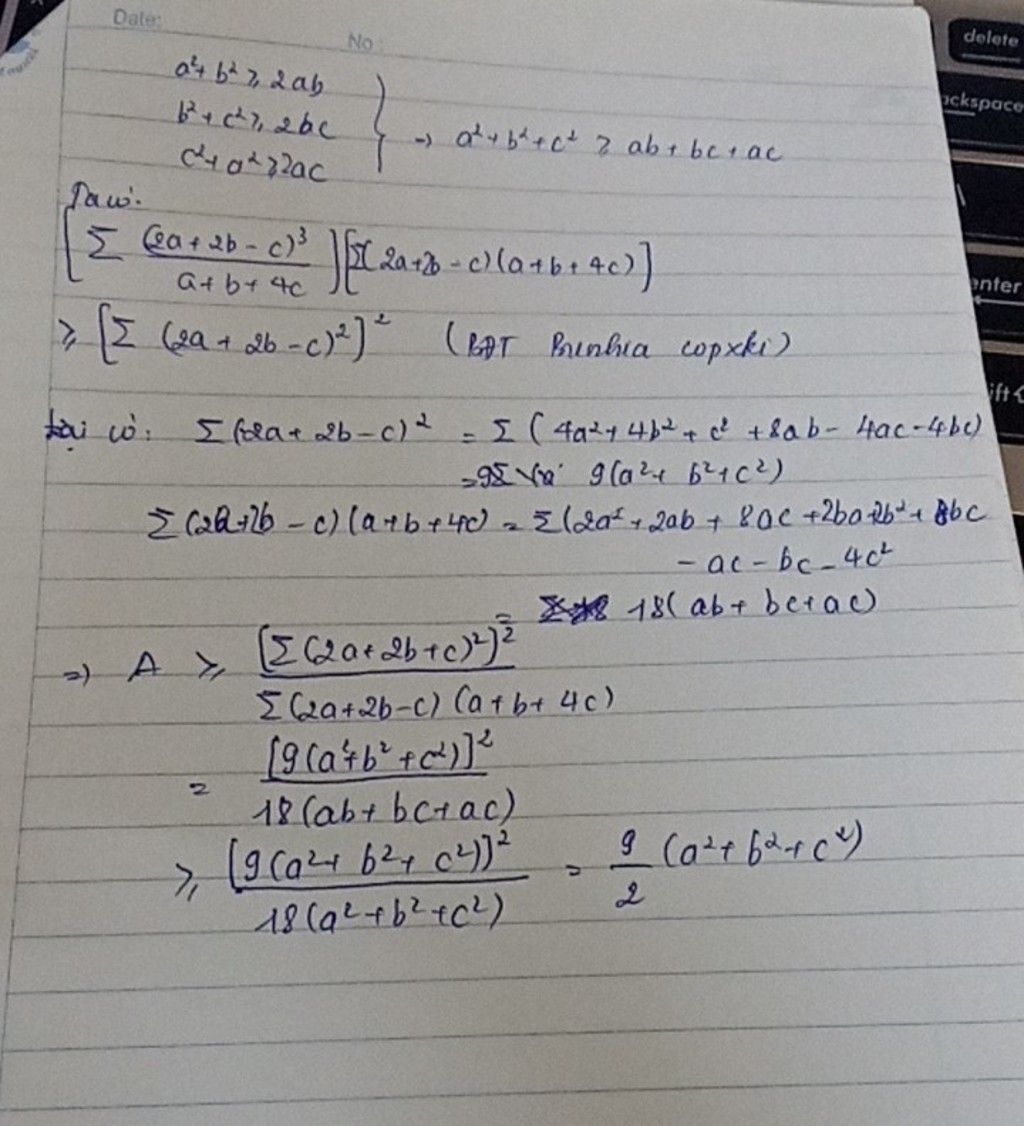 Date:
No:
a²+ b² ≥ 2ab
b² + c² ≥ 2bc
c²+ a² ≥ 2ac
→ a²+b²+c² ≥ ab + bc + ac
Ta có:
[Σ (2a+2b-c)³ / a+b+4c][Σ(2a+2b-c)(a+b+4c)]
≥ [Σ (2a+2b-c)²]² (BĐT Bunhia copxki)
Lại có: Σ(2a+2b-c)² = Σ(4a²+4b²+c²+8ab-4ac-4bc)
= 9(a²+b²+c²)
Σ(2a+2b-c)(a+b+4c) = Σ(2a²+2ab+8ac+2ba+2b²+8bc
-ac-bc-4c²
= 18(ab+bc+ac)
=> A ≥ [Σ(2a+2b+c)²]² / Σ(2a+2b-c)(a+b+4c)
= [9(a²+b²+c²)]² / 18(ab+bc+ac)
≥ [9(a²+b²+c²)]² / 18(a²+b²+c²) = 9/2 (a²+b²+c²)
delete
backspace
\
enter
ift